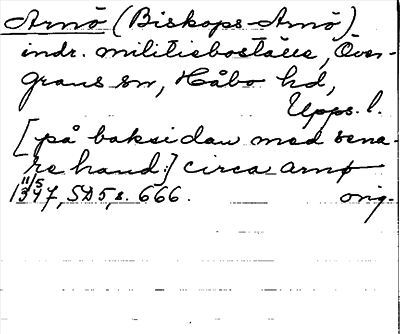 Arnö (Biskops-Arnö)
indr. militieboställe, Över-
grans sn, Håbo hd,
Upps. l.
[på baksidan med sena-
re hand:] circa arnø
11/5 1347, SD 5, s. 666. orig.